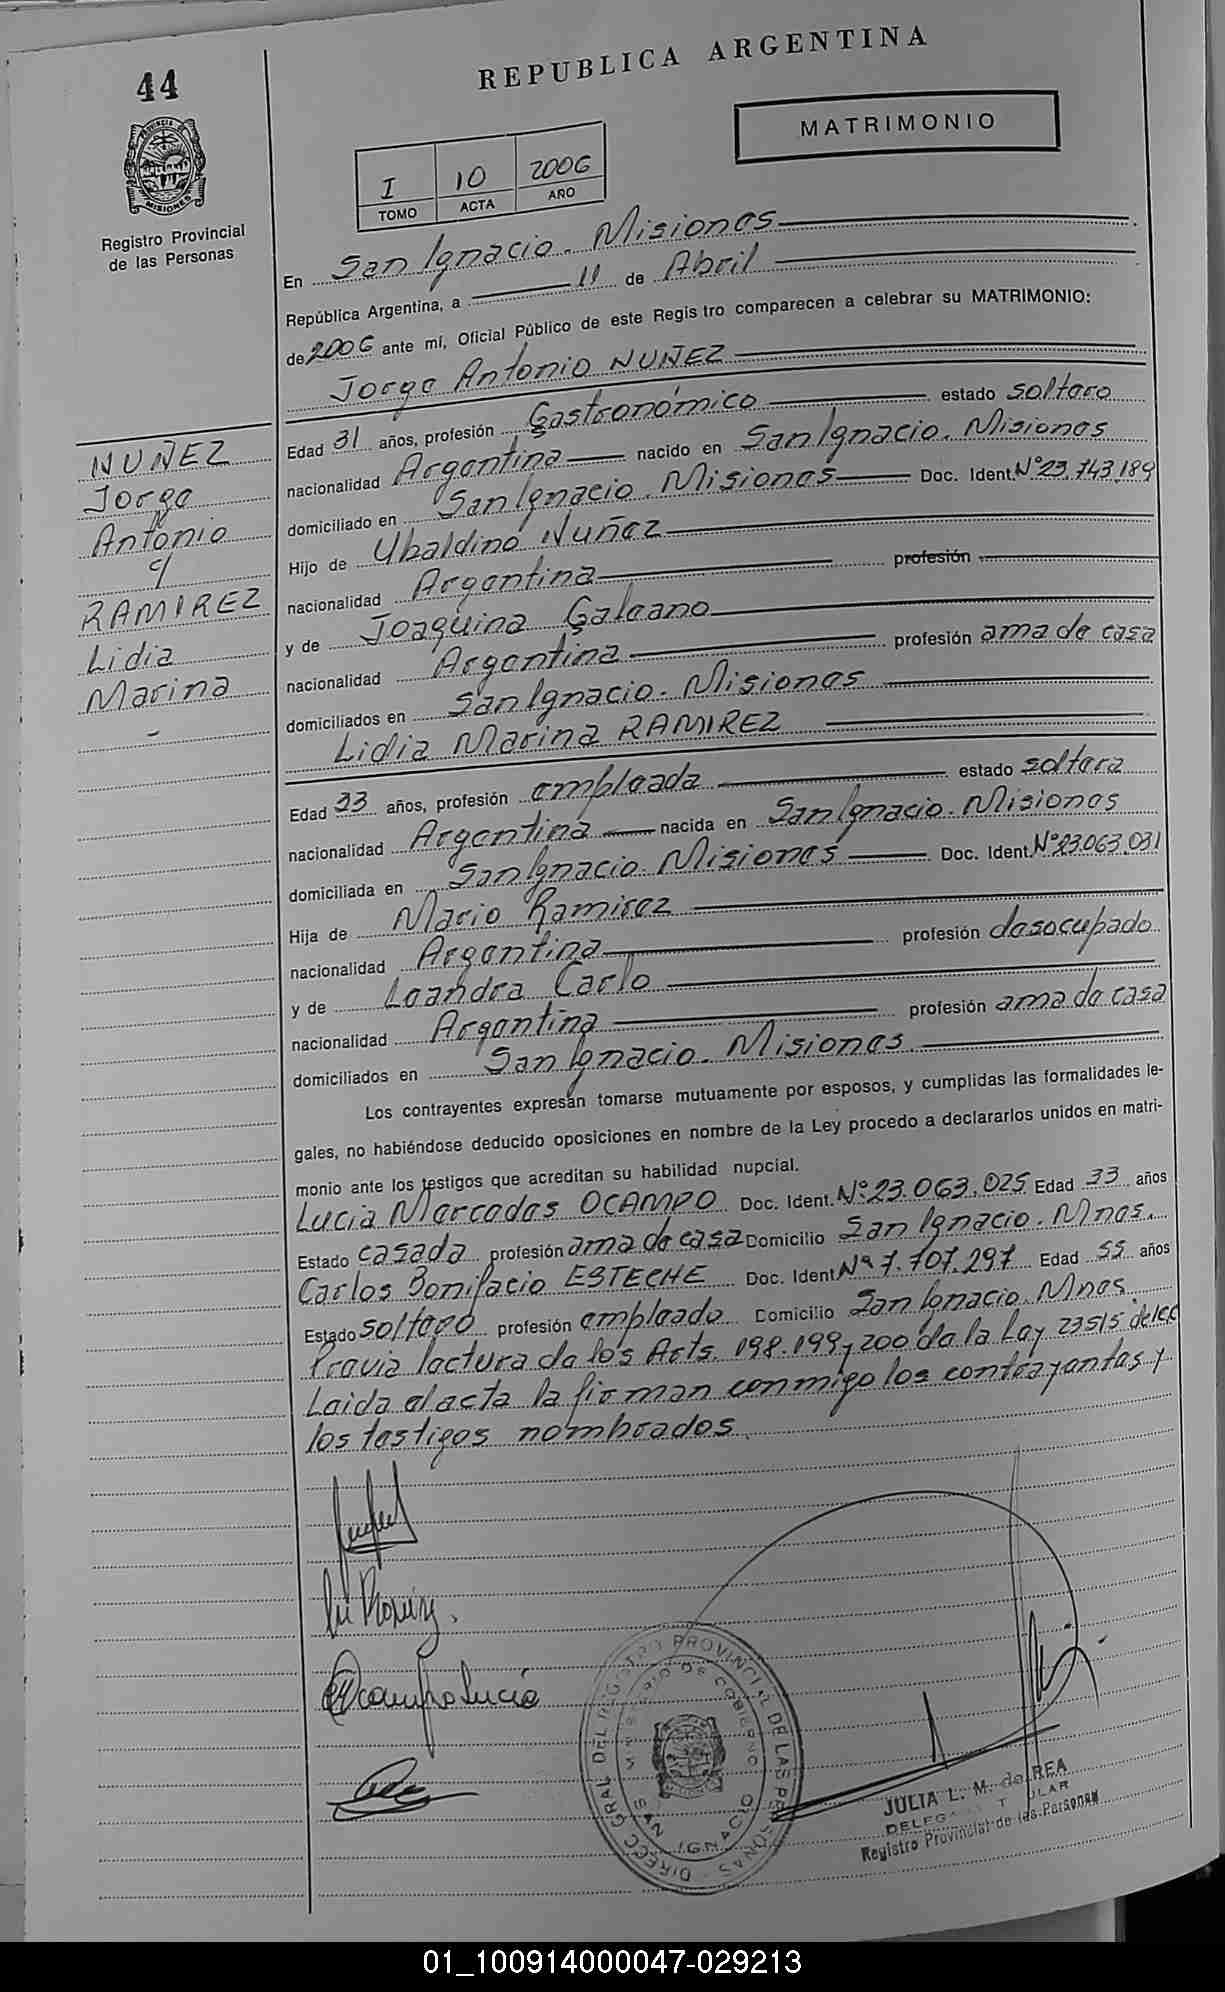 44
PROVINCIA DE
MISIONES
Registro Provincial
de las Personas
NUÑEZ
Jorge
Antonio
c/
RAMIREZ
Lidia
Marina
-
REPUBLICA ARGENTINA
MATRIMONIO
I 10 2006
TOMO ACTA AÑO
En San Ignacio - Misiones
República Argentina, a 11 de Abril
de 2006 ante mí, Oficial Público de este Registro comparecen a celebrar su MATRIMONIO:
Jorge Antonio NUÑEZ
Edad 31 años, profesión Gastronómico estado soltero
nacionalidad Argentina nacido en San Ignacio. Misiones
domiciliado en San Ignacio. Misiones Doc. Ident. Nº 23.743.189
Hijo de Ubaldino Nuñez
nacionalidad Argentina profesión
y de Joaquina Galeano
nacionalidad Argentina profesión ama de casa
domiciliados en San Ignacio - Misiones
Lidia Marina RAMIREZ
Edad 33 años, profesión empleada estado soltera
nacionalidad Argentina nacida en San Ignacio. Misiones
domiciliada en San Ignacio. Misiones Doc. Ident. Nº 23.063.031
Hija de Mario Ramirez
nacionalidad Argentina profesión desocupado
y de Leandra Carlo
nacionalidad Argentina profesión ama de casa
domiciliados en San Ignacio - Misiones
Los contrayentes expresan tomarse mutuamente por esposos, y cumplidas las formalidades le-
gales, no habiéndose deducido oposiciones en nombre de la Ley procedo a declararlos unidos en matri-
monio ante los testigos que acreditan su habilidad nupcial.
Lucia Mercedes OCAMPO Doc. Ident. Nº 23.063.025 Edad 33 años
Estado casada profesión ama de casa Domicilio San Ignacio. Mnes.
Carlos Bonifacio ESTECHE Doc. Ident Nº 7.707.297 Edad 55 años
Estado soltero profesión empleado Domicilio San Ignacio. Mnes.
Previa lectura de los Arts. 198.199 y 200 de la Ley 23515 del CC
Leida el acta la firman conmigo los contrayentes y
los testigos nombrados.
Ocampo Lucia
DIRECC GRAL DEL REGISTRO PROVINCIAL DE LAS PERSONAS
MINISTERIO DE GOBIERNO
SAN IGNACIO
JULIA L. M. de REA
DELEGADA TITULAR
Registro Provincial de las Personas
01_100914000047-029213